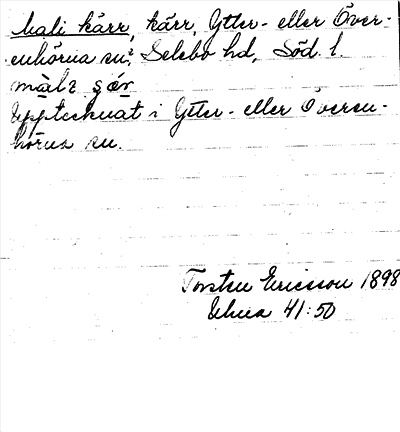 Mali kärr, kärr, Ytter- eller Över-
enhörna sn?, Selebo hd, Söd. l.
màlɩ çǽr
Upptecknat i Ytter- eller Överen-
hörna sn.
Torsten Ericsson 1898
Ulma 41:50